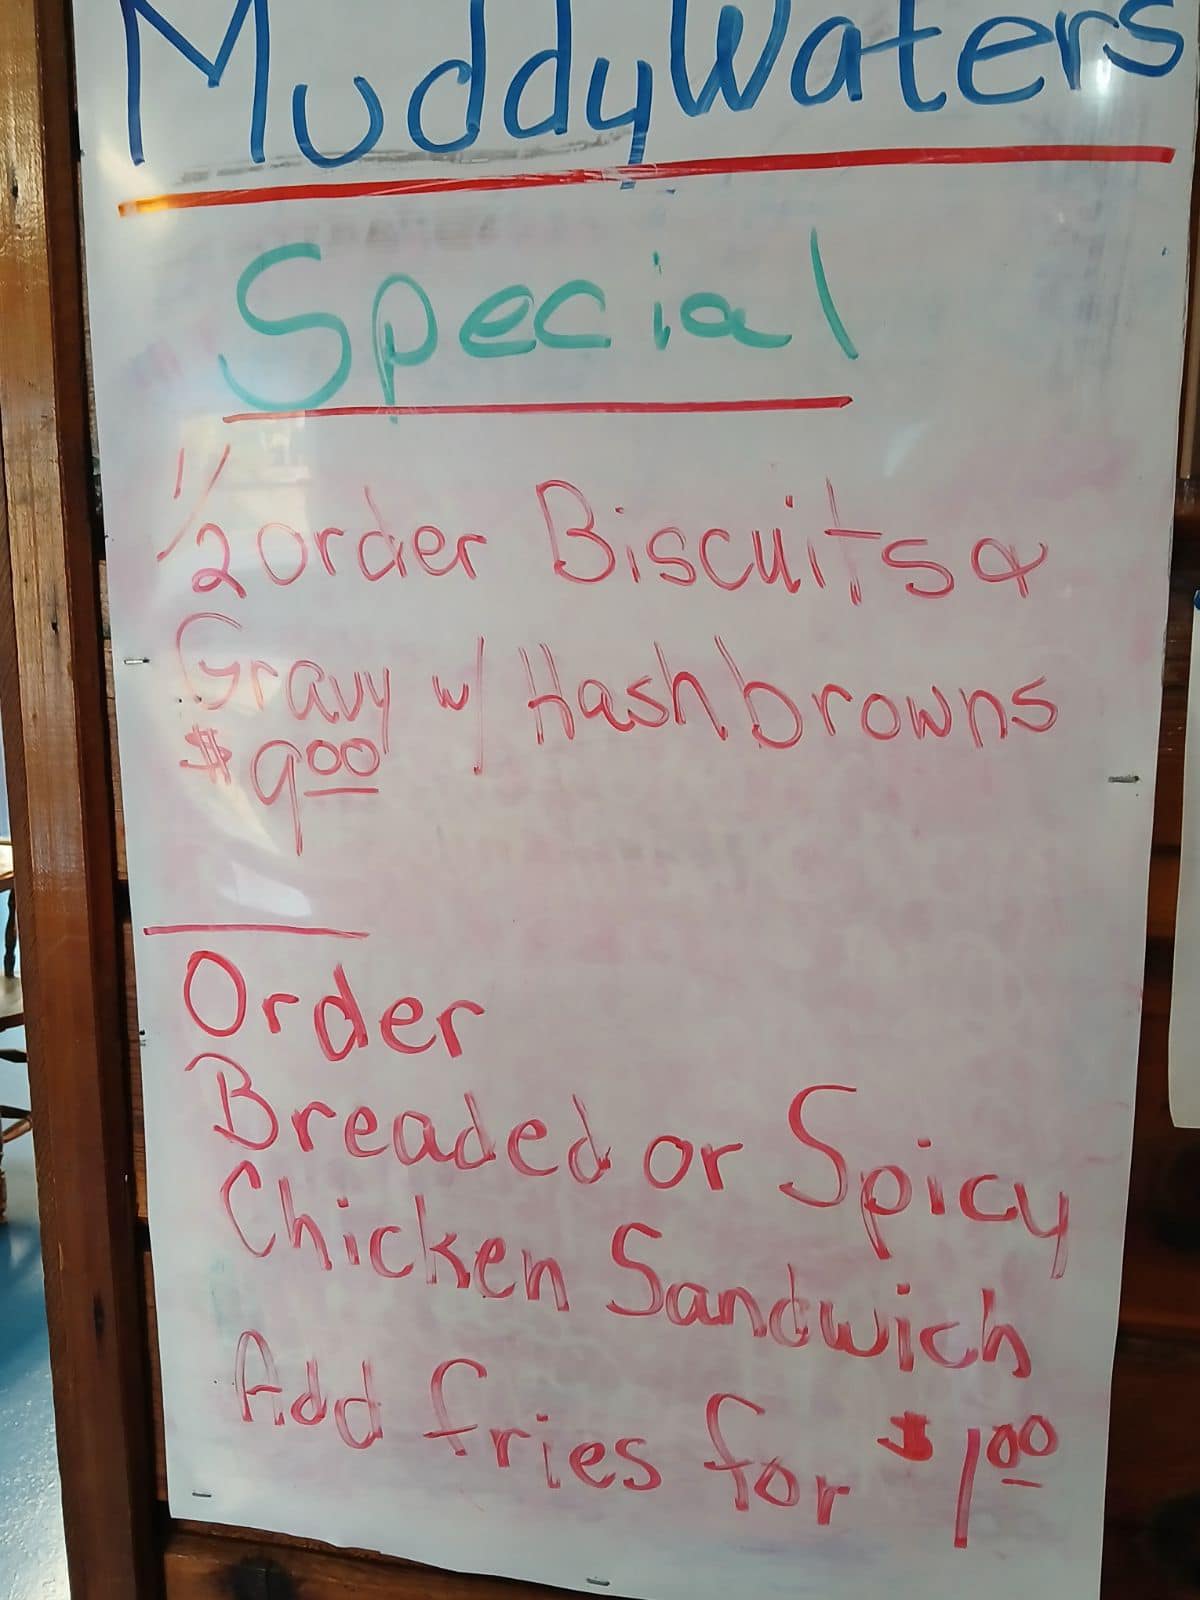 MuddyWaters
Special
1/2 order Biscuits &
Gravy w/ Hashbrowns
$9.00
Order
Breaded or Spicy
Chicken Sandwich
Add fries for $1.00